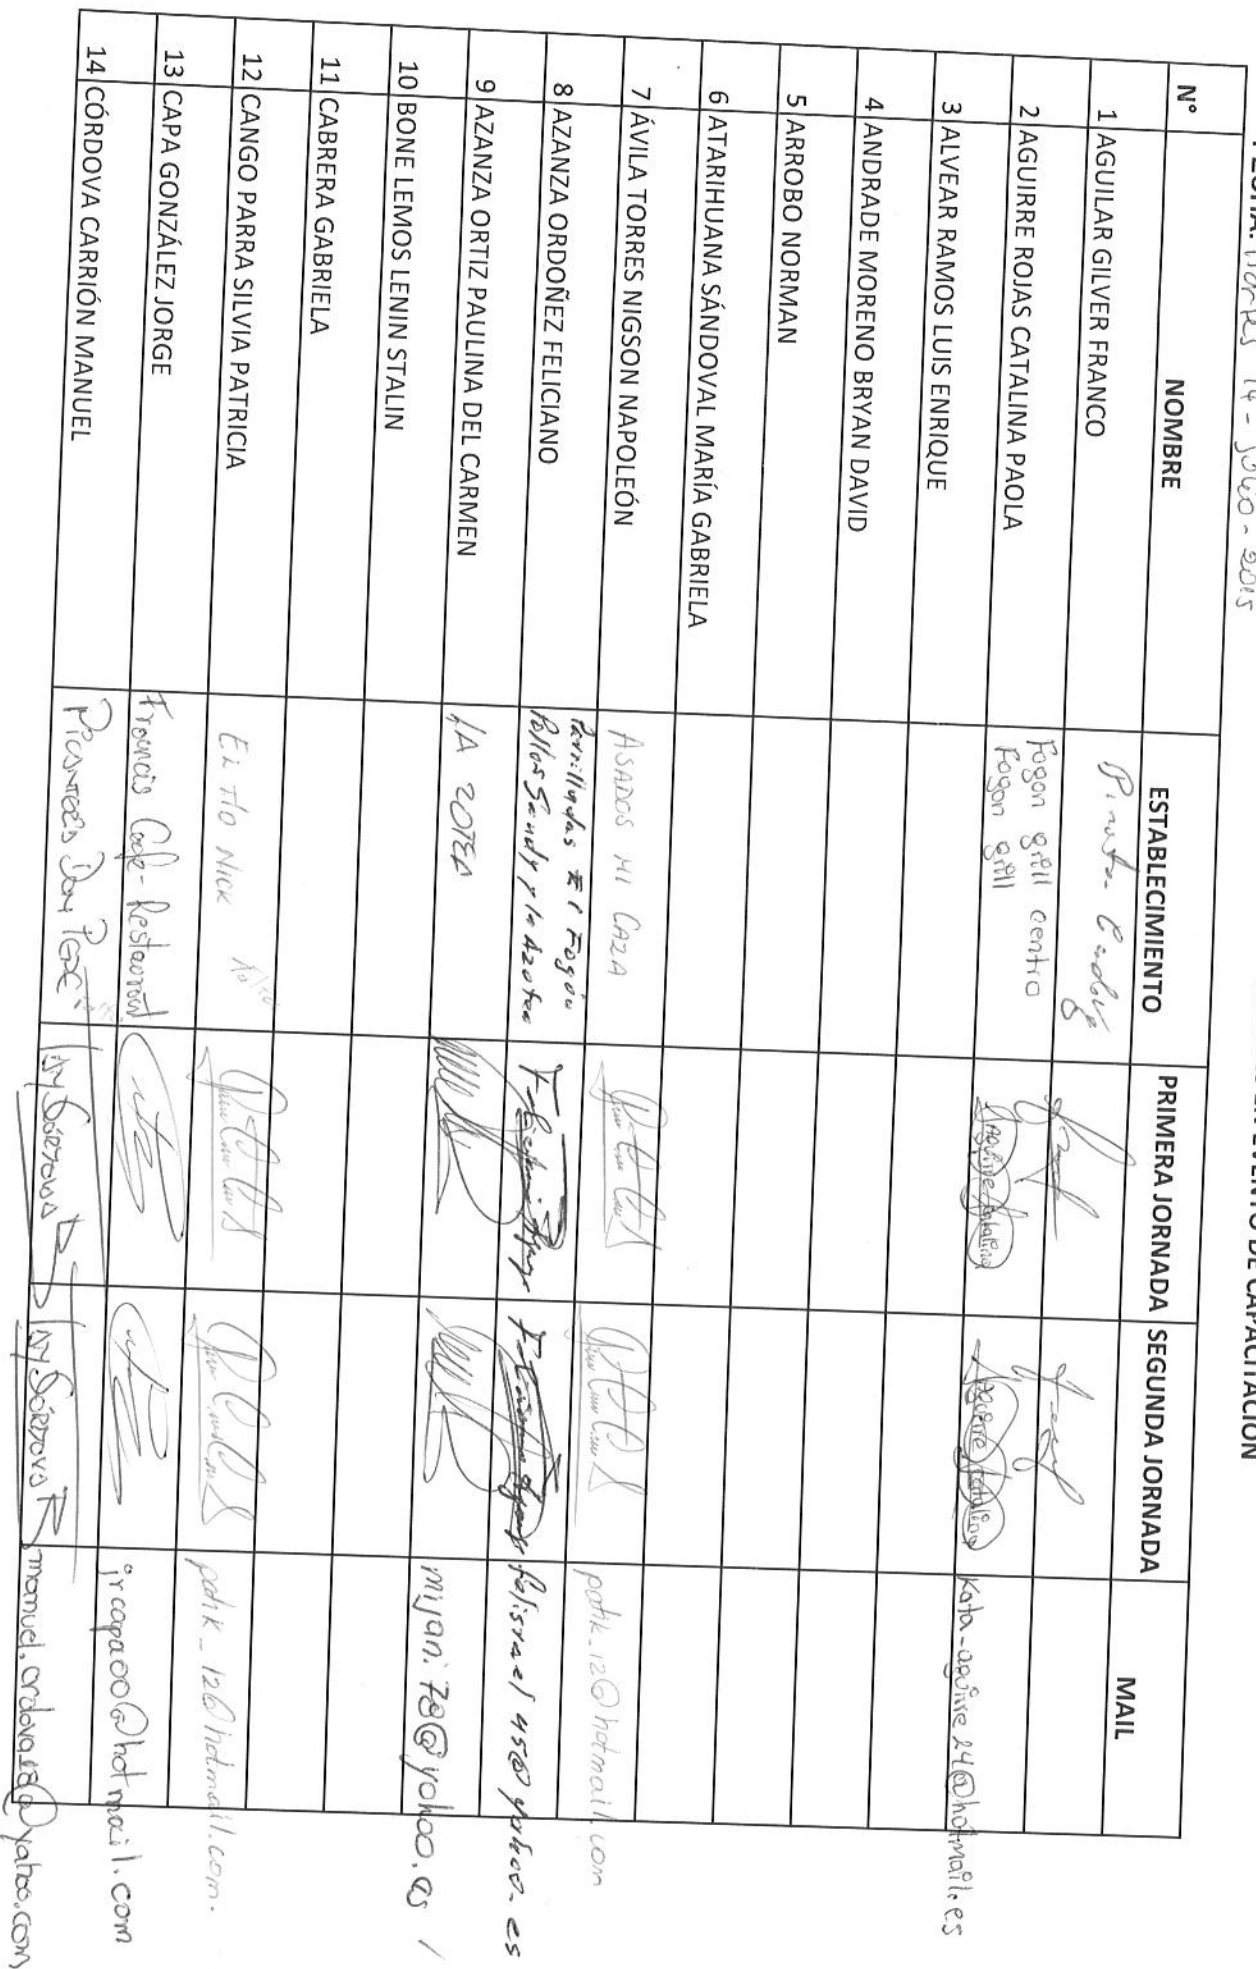 EVENTO DE CAPACITACIÓN
FECHA: Martes 14 - Julio - 2015
N° NOMBRE ESTABLECIMIENTO PRIMERA JORNADA SEGUNDA JORNADA MAIL
1 AGUILAR GILVER FRANCO
2 AGUIRRE ROJAS CATALINA PAOLA Fogon grill centro
Fogon grill Aguirre Catalina Aguirre Catalina Kata-aguirre24@hotmail.es
3 ALVEAR RAMOS LUIS ENRIQUE
4 ANDRADE MORENO BRYAN DAVID
5 ARROBO NORMAN
6 ATARIHUANA SÁNDOVAL MARÍA GABRIELA
7 ÁVILA TORRES NIGSON NAPOLEÓN ASADOS MI CAZA patik_12@hotmail.com
8 AZANZA ORDOÑEZ FELICIANO Parrilladas El Fogón
Pollos Sandy y la Azotea felisrael45@yahoo.es
9 AZANZA ORTIZ PAULINA DEL CARMEN LA ZOTEA mijani78@yahoo.es /
10 BONE LEMOS LENIN STALIN
11 CABRERA GABRIELA
12 CANGO PARRA SILVIA PATRICIA EL TIO NICK patik_12@hotmail.com.
13 CAPA GONZÁLEZ JORGE Francis Cafe-Restaurant jrcapa00@hotmail.com
14 CÓRDOVA CARRIÓN MANUEL Córdova Córdova